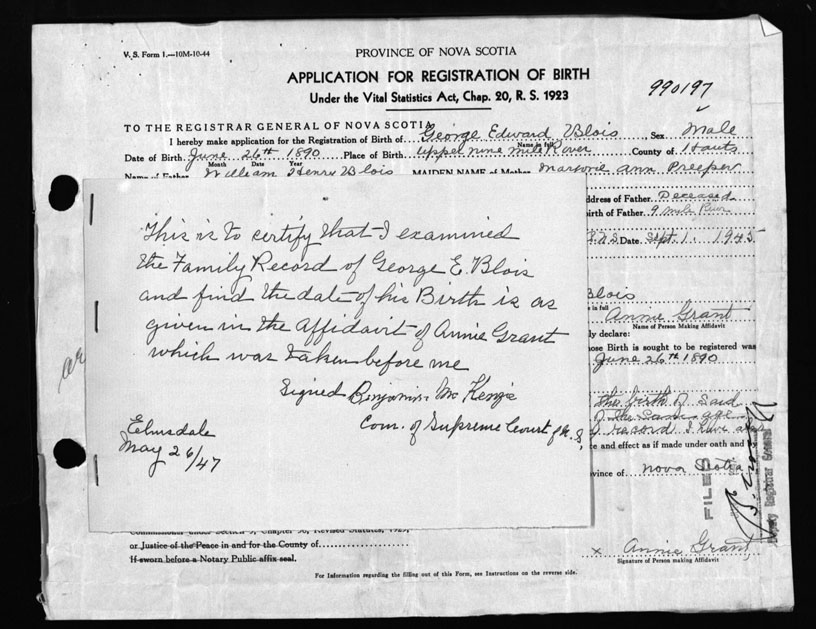 V. S. Form 1.—10M-10-44
PROVINCE OF NOVA SCOTIA
APPLICATION FOR REGISTRATION OF BIRTH
Under the Vital Statistics Act, Chap. 20, R. S. 1923
990197
TO THE REGISTRAR GENERAL OF NOVA SCOTIA:
I hereby make application for the Registration of Birth of George Edward Blois Sex Male
Name in full
Date of Birth June 26th 1890 Place of Birth Upper nine mile River County of Hants
Month Date Year
Name of Father William Henry Blois MAIDEN NAME of Mother Marjorie Ann Preeper
ddress of Father Deceased
irth of Father 9 mile River
Date Sept. 1. 1945
This is to certify that I examined
the Family Record of George E. Blois
and find the date of his Birth is as
given in the affidavit of Annie Grant
which was taken before me
Signed Benjamin Mc Kenzie
Com. of Supreme Court of N. S,
Elmsdale
May 26/47
Blois
e in full
Annie Grant
Name of Person Making Affidavit
ly declare:
nose Birth is sought to be registered was
June 26th 1890
the birth of said
record I have
ce and effect as if made under oath and by
vince of Nova Scotia
FILED
Deputy Registrar General
Commissioner under Section 9, Chapter 38, Revised Statutes, 1923,
or Justice of the Peace in and for the County of
If sworn before a Notary Public affix seal.
x Annie Grant
Signature of Person making Affidavit
For Information regarding the filling out of this Form, see Instructions on the reverse side.